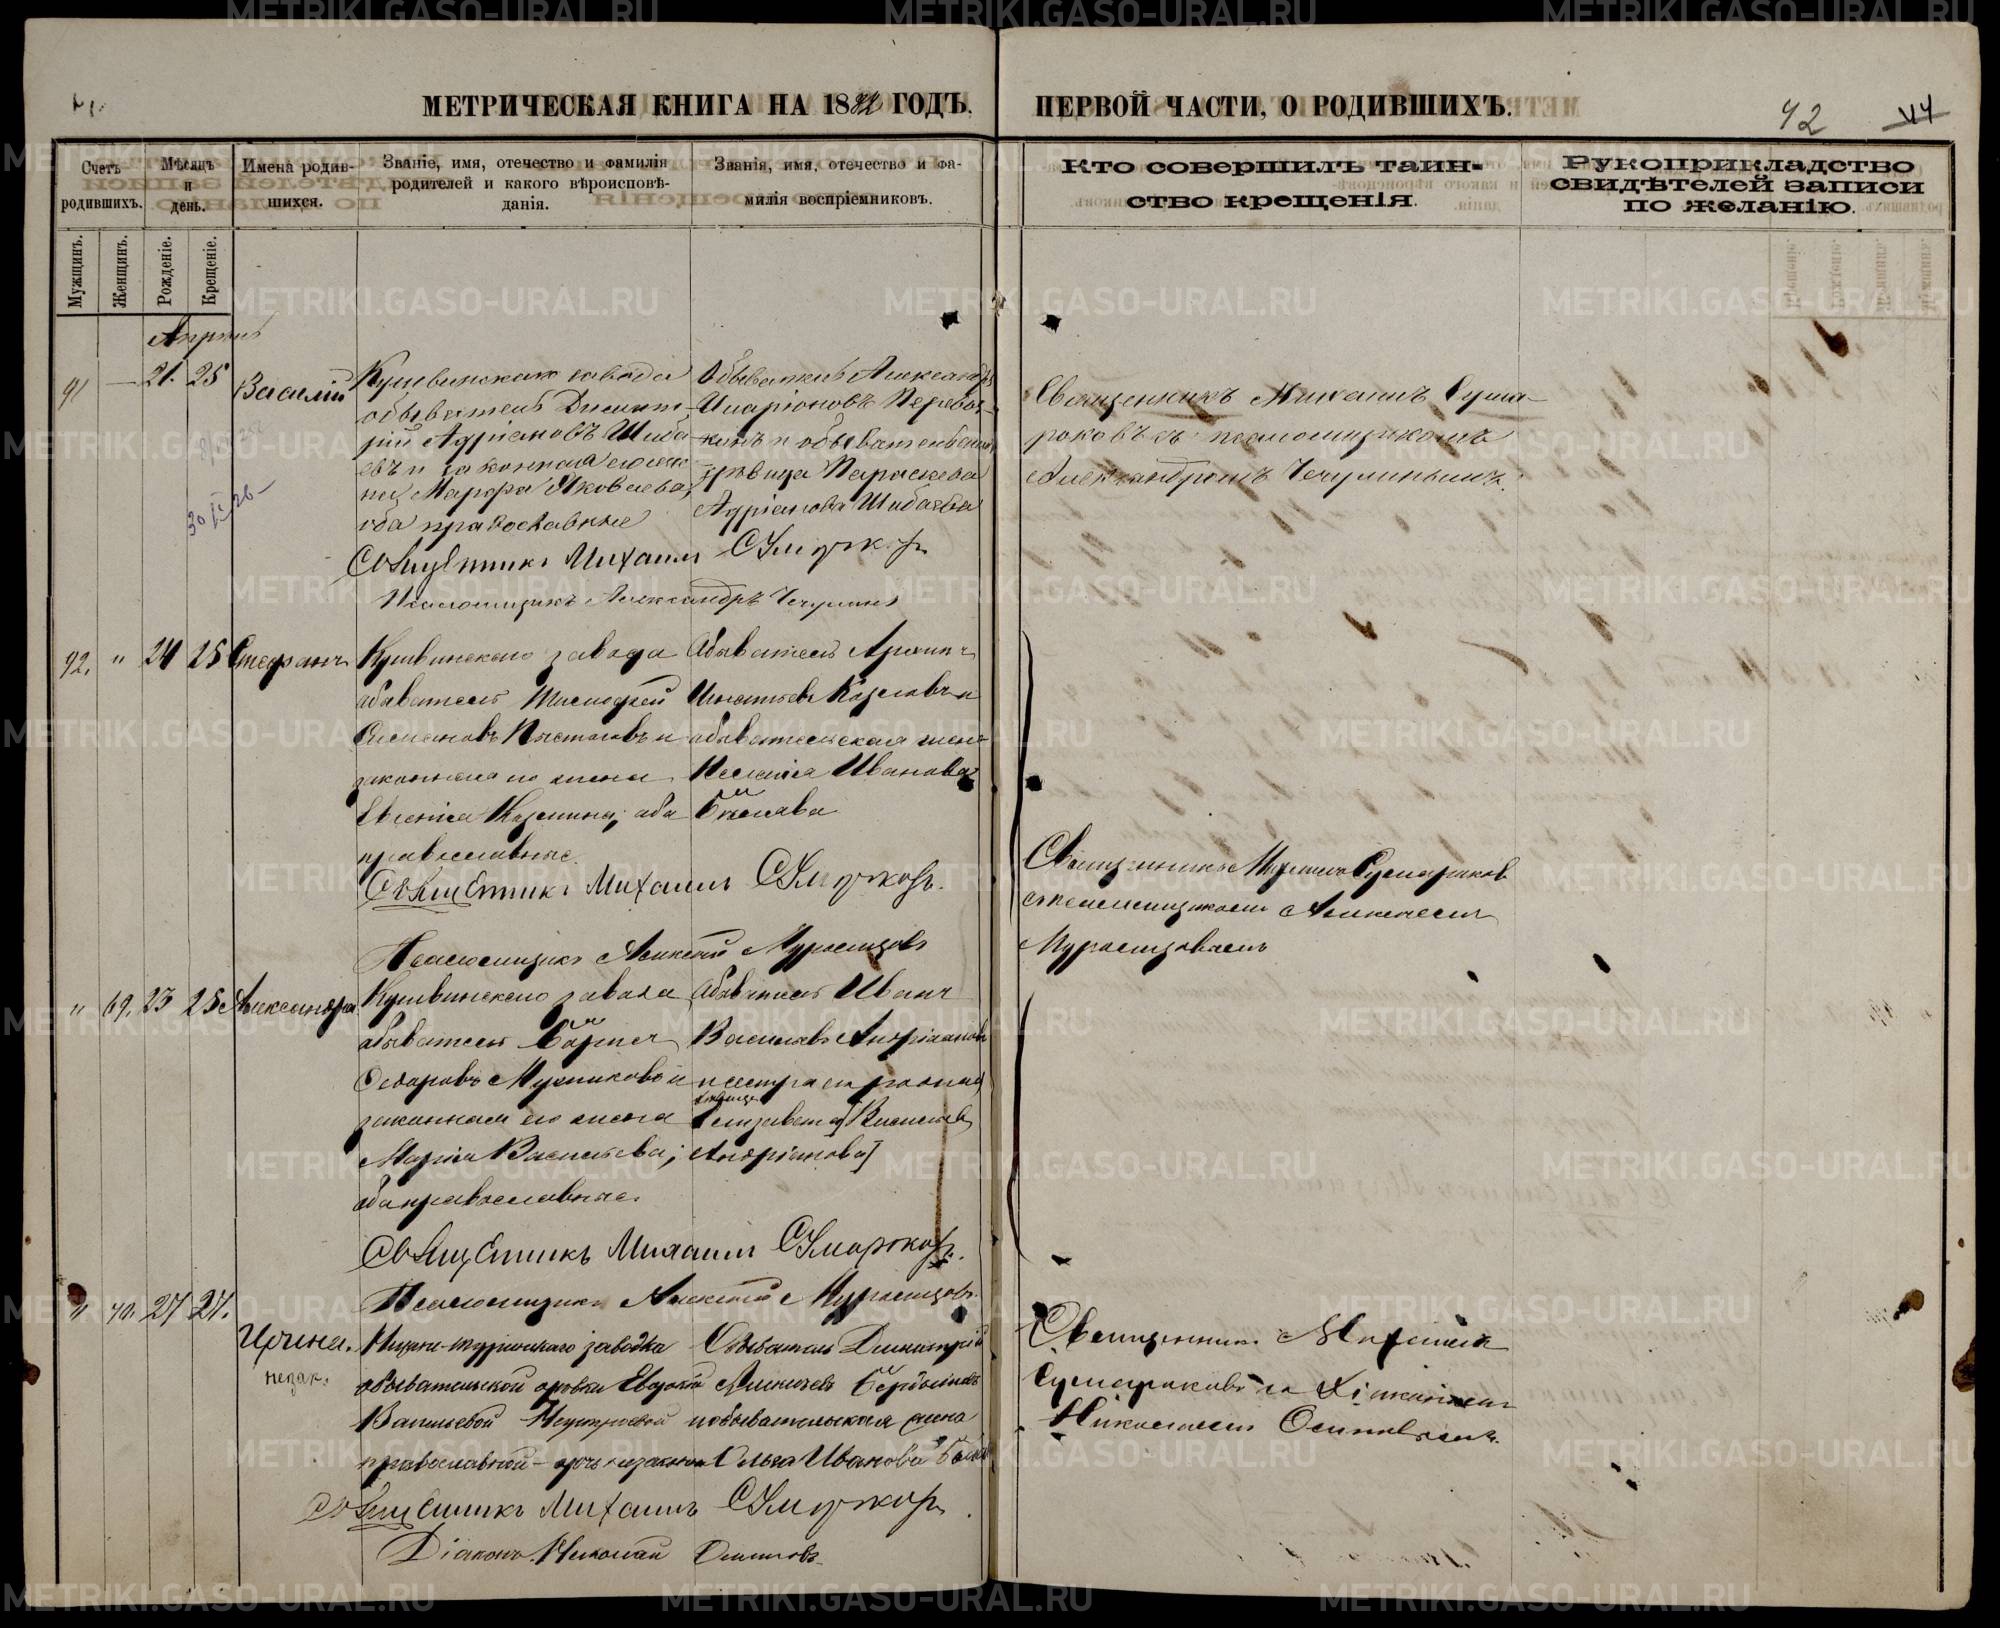 МЕТРИЧЕСКАЯ КНИГА НА 1882 ГОДЪ.
ПЕРВОЙ ЧАСТИ, О РОДИВШИХЪ.
42
Счетъ родившихъ.
Мѣсяцъ и день.
Имена родившихся.
Званіе, имя, отечество и фамилія родителей и какого вѣроисповѣданія.
Званія, имя, отечество и фамилія воспріемниковъ.
Кто совершилъ таинство крещенія.
Рукоприкладство свидѣтелей записи по желанію.
Мужщинъ.
Женщинъ.
Рожденіе.
Крещеніе.
Апрѣль
91 — 21. 25 Василій
Кушвинскаго завода
обыватель Димит-
рій Адріановъ Шиба-
евъ и законная его же-
на Марѳа Яковлева,
оба православные
Обыватель Александръ
Иларіоновъ Перевоз-
кинъ и обывательская
дѣвица Параскева
Адріанова Шибаева
Священникъ Михаилъ Сума-
роковъ съ псаломщикомъ
Александромъ Чечулинымъ.
Священникъ Михаилъ Сумароковъ
Псаломщикъ Александръ Чечулинъ
92. " 24 25 Стефанъ
Кушвинскаго завода
обыватель Тимоѳей
Симеоновъ Постоловъ и
законная его жена
Евгенія Козмина; оба
православные.
Обыватель
Игнатьевъ Козловъ и
обывательская жена
Пелагія Иванова
Священникъ Михаилъ Сумароковъ
съ псаломщикомъ Алексѣемъ
Мурзинцовымъ
Священникъ Михаилъ Сумароковъ.
Псаломщикъ Алексѣй
" 69. 23 25 Александра
Кушвинскаго завода
обыватель
Ѳедоровъ Мушниковъ и
законная его жена
Марія Васильева;
оба православные.
Обыватель Иванъ
Васильевъ Андріановъ
и сестра его родная
дѣвица
Елизавета [Васильева
Андріанова]
Священникъ Михаилъ Сумароковъ.
Псаломщикъ Алексѣй
" 70. 27 27. Ирина.
незак.
Нижне-туринскаго завода
обывательской дѣвки Евдокіи
Васильевой
православной — дочь незаконная
Обыватель Димитрій
Алексѣевъ
и обывательская жена
Ольга Иванова
Священникъ Михаилъ
Сумароковъ съ Діакономъ
Николаемъ Осиповымъ.
Священникъ Михаилъ Сумароковъ.
Діаконъ Николай Осиповъ.
METRIKI.GASO-URAL.RU